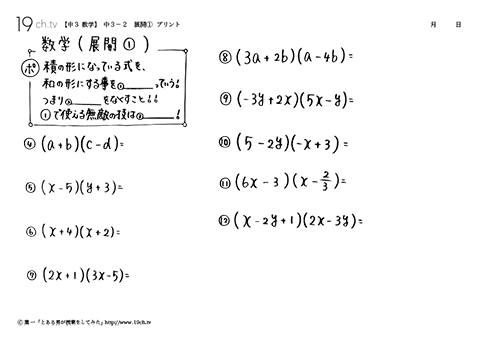 19ch.tv 【中3 数学】 中3-2 展開① プリント
月 日
数学(展開①)
ポ 積の形になっている式を、
和の形にする事を①______っていう!
つまり②______をなくすこと!!
①で使える無敵の技は③______!
④ (a+b)(c-d)=
⑤ (x-5)(y+3)=
⑥ (x+4)(x+2)=
⑦ (2x+1)(3x-5)=
⑧ (3a+2b)(a-4b)=
⑨ (-3y+2x)(5x-y)=
⑩ (5-2y)(-x+3)=
⑪ (6x-3)(x-2/3)=
⑫ (x-2y+1)(2x-3y)=
© 葉一「とある男が授業をしてみた」http://www.19ch.tv